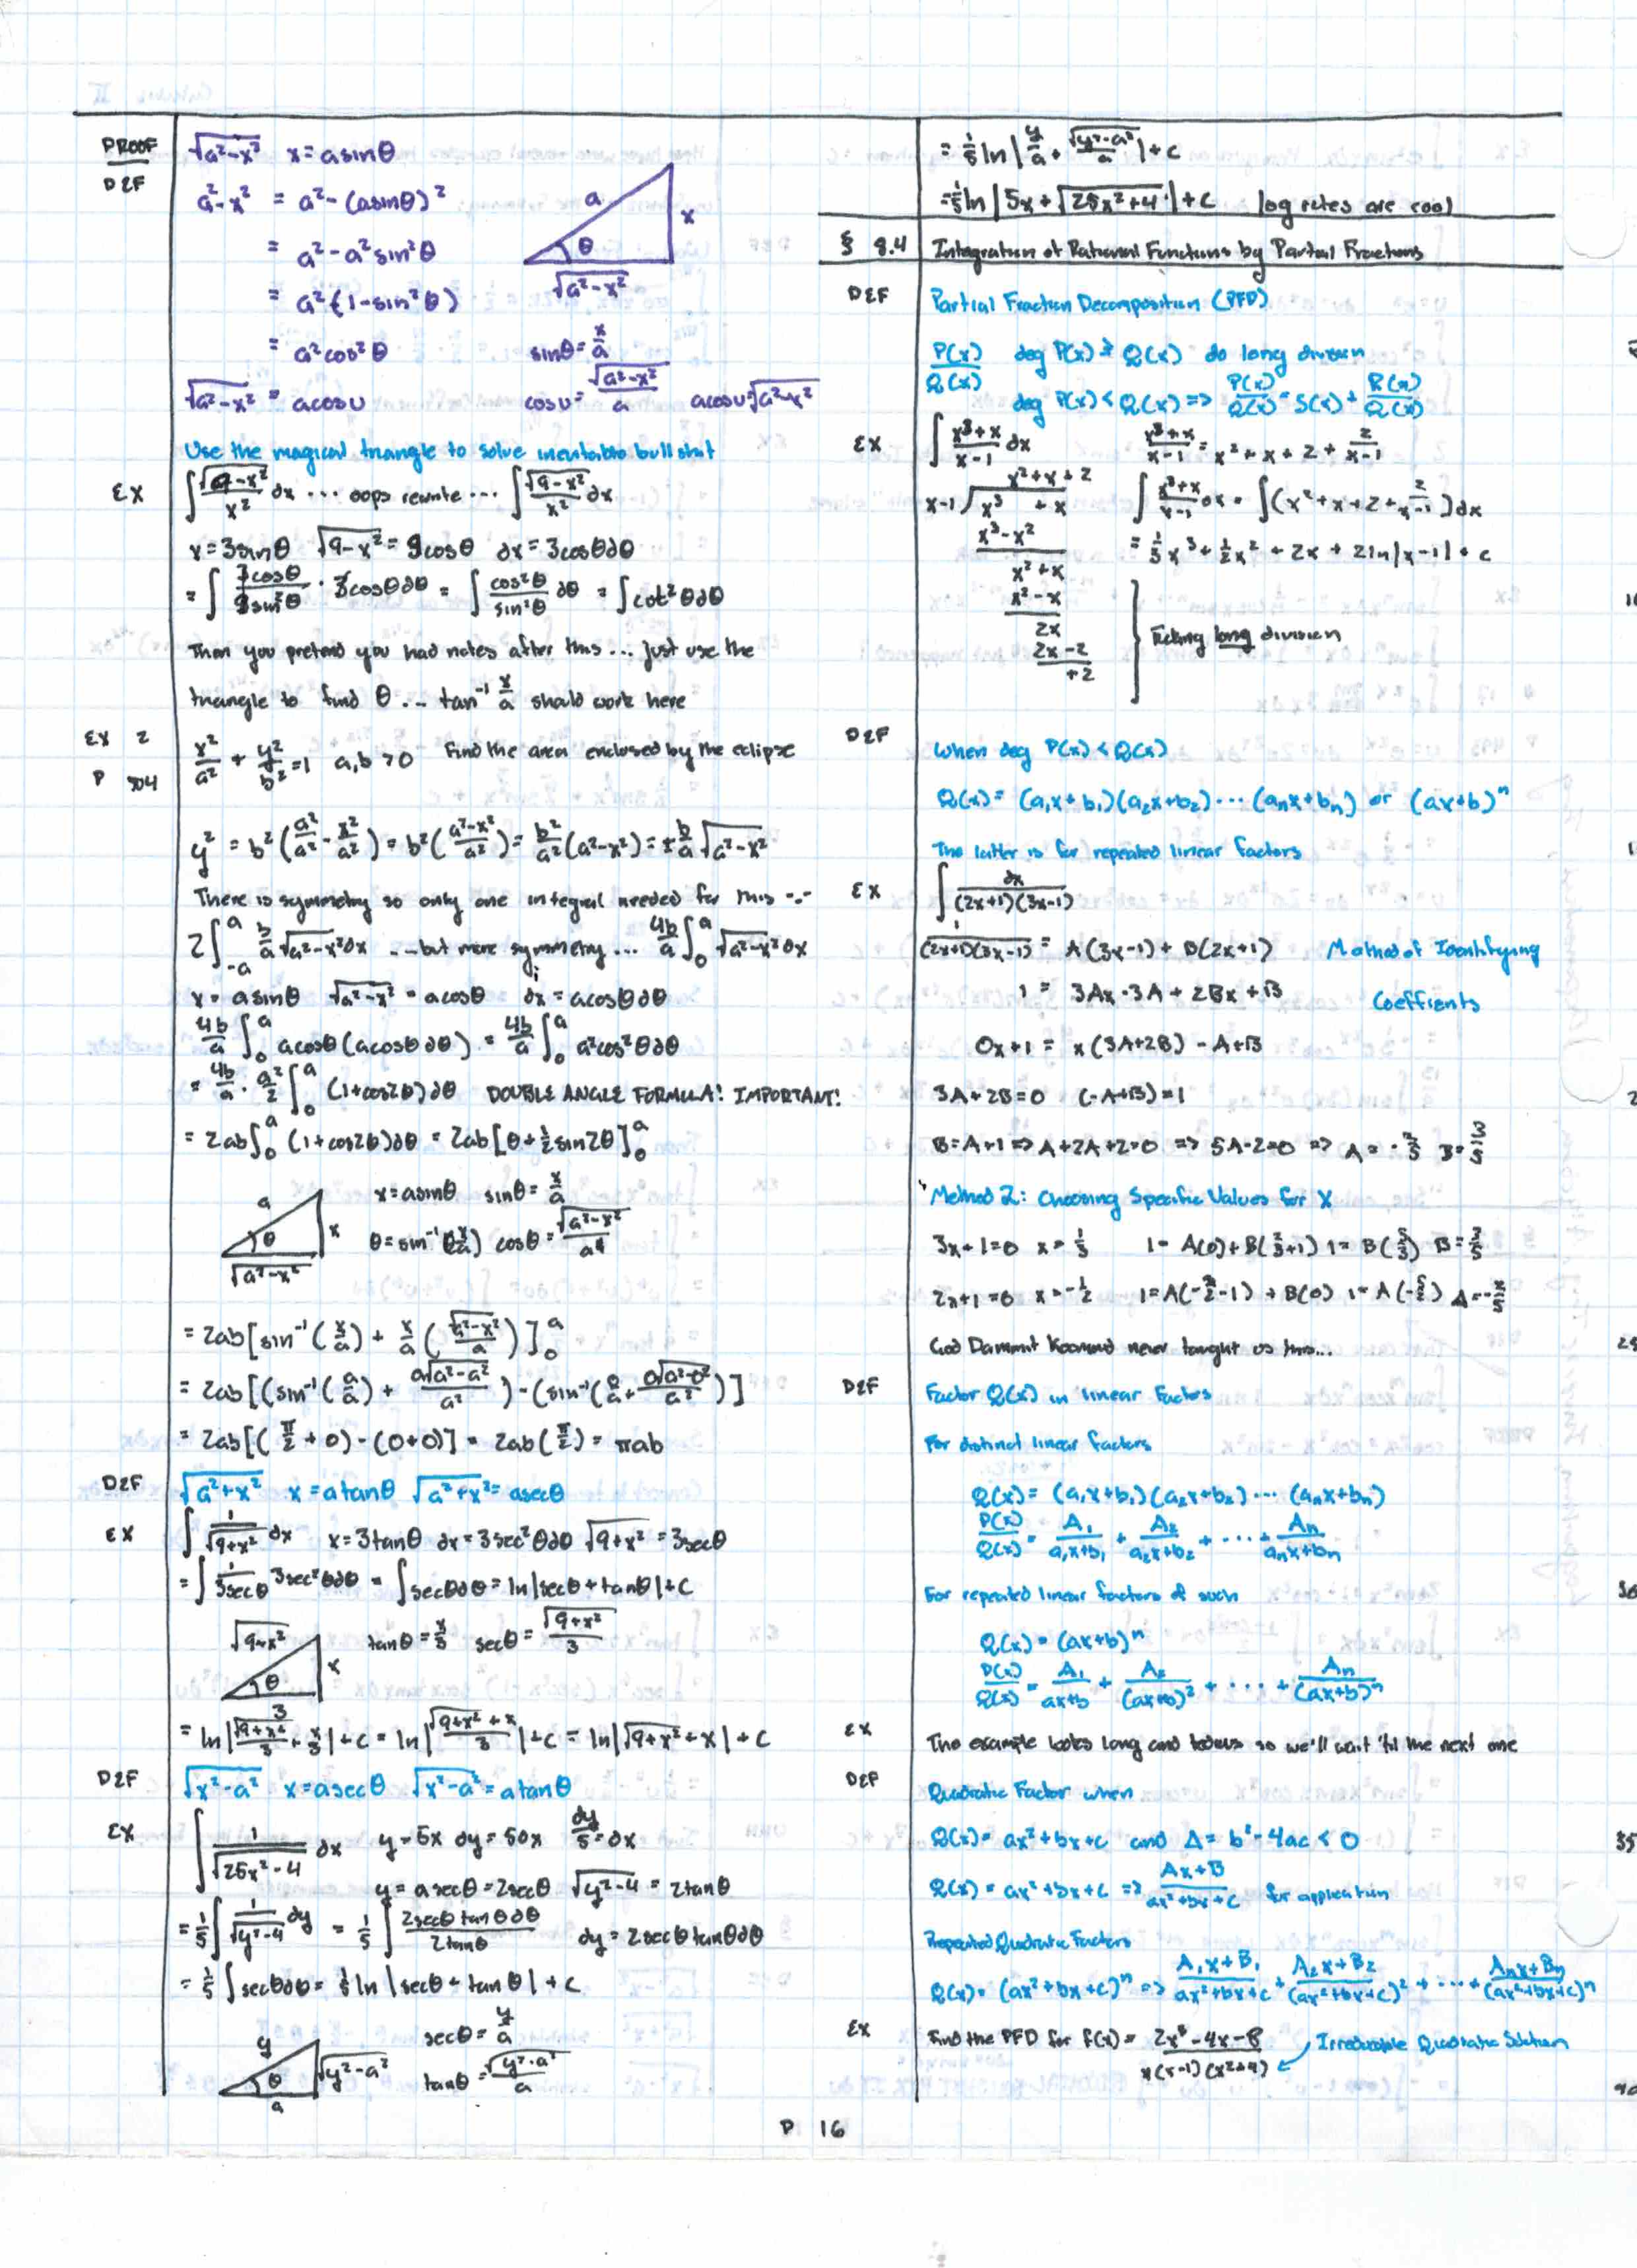 PROOF
DEF
√a²-x²  x = asinθ
a²-x² = a²-(asinθ)²
= a²-a²sin²θ
= a²(1-sin²θ)
= a²cos²θ
√a²-x² = acosu
a
x
θ
√a²-x²
sinθ = x/a
cosu = √a²-x²/a  acosu = √a²-x²
Use the magical triangle to solve inevitable bullshit
EX ∫ √9-x²/x² dx ... oops rewrite ... ∫ √9-x²/x² dx
x = 3sinθ  √9-x² = 3cosθ  dx = 3cosθdθ
= ∫ 3cosθ/9sin²θ · 3cosθdθ = ∫ cos²θ/sin²θ dθ = ∫cot²θdθ
Then you pretend you had notes after this... just use the
triangle to find θ... tan⁻¹ x/a should work here
EX 2
P 504
x²/a² + y²/b² = 1  a,b > 0  Find the area enclosed by the eclipse
y² = b²(a²/a² - x²/a²) = b²(a²-x²/a²) = b²/a²(a²-x²) = ±b/a √a²-x²
There is symmetry so only one integral needed for this ...
2∫₋ₐᵃ b/a √a²-x² dx ... but more symmetry ... 4b/a ∫₀ᵃ √a²-x² dx
x = asinθ  √a²-x² = acosθ  dx = acosθdθ
4b/a ∫₀ᵃ acosθ(acosθdθ) = 4b/a ∫₀ᵃ a²cos²θdθ
= 4b/a · a²/2 ∫₀ᵃ (1+cos2θ)dθ  DOUBLE ANGLE FORMULA! IMPORTANT!
= 2ab∫₀ᵃ (1+cos2θ)dθ = 2ab[θ+½sin2θ]₀ᵃ
a
x
θ
√a²-x²
x = asinθ  sinθ = x/a
θ = sin⁻¹(x/a)  cosθ = √a²-x²/a
= 2ab[sin⁻¹(x/a) + x/a(√a²-x²/a)]₀ᵃ
= 2ab[(sin⁻¹(a/a) + a√a²-a²/a²) - (sin⁻¹(0/a + 0√a²-0²/a²)]
= 2ab[(π/2 + 0) - (0+0)] = 2ab(π/2) = πab
DEF √a²+x²  x = atanθ  √a²+x² = asecθ
EX ∫ 1/√9+x² dx  x = 3tanθ  dx = 3sec²θdθ  √9+x² = 3secθ
= ∫ 1/3secθ 3sec²θdθ = ∫secθdθ = ln|secθ+tanθ|+C
√9+x²
x
θ
3
tanθ = x/3  secθ = √9+x²/3
= ln|√9+x²/3 + x/3|+C = ln|√9+x²+x/3|+C = ln|√9+x²+x|+C
DEF √x²-a²  x = asecθ  √x²-a² = atanθ
EX ∫ 1/√25x²-4 dx  y = 5x  dy = 5dx  dy/5 = dx
y = asecθ = 2secθ  √y²-4 = 2tanθ
= 1/5 ∫ 1/√y²-4 dy = 1/5 ∫ 2secθtanθdθ/2tanθ  dy = 2secθtanθdθ
= 1/5 ∫secθdθ = 1/5 ln|secθ+tanθ|+C
y
√y²-a²
θ
a
secθ = y/a
tanθ = √y²-a²/a
= 1/5 ln|y/a + √y²-a²/a|+C
= 1/5 ln|5x+√25x²+4|+C  log rules are cool
§ 8.4 Integration of Rational Functions by Partial Fractions
DEF Partial Fraction Decomposition (PFD)
P(x)/Q(x)  deg P(x) ≥ Q(x) do long division
deg P(x) < Q(x) => P(x)/Q(x) = S(x) + R(x)/Q(x)
EX ∫ x³+x/x-1 dx  x³+x/x-1 = x²+x+2+ 2/x-1
x²+x+2
x-1 √x³ + x
x³-x²
x²+x
x²-x
2x
2x-2
+2
∫ x³+x/x-1 dx = ∫(x²+x+2+ 2/x-1)dx
= 1/3x³+½x²+2x+2ln|x-1|+C
Fcking long division
DEF When deg P(x) < Q(x)
Q(x) = (a₁x+b₁)(a₂x+b₂)···(aₙx+bₙ) or (ax+b)ⁿ
The latter is for repeated linear factors
EX ∫ dx/(2x+1)(3x-1)
1/(2x+1)(3x-1) = A(3x-1)+B(2x+1)  Method of Identifying
1 = 3Ax-3A+2Bx+B  Coeffients
0x+1 = x(3A+2B)-A+B
3A+2B=0  (-A+B)=1
B=A+1 => A+2A+2=0 => 5A-2=0 => A=-2/5  B=3/5
Method 2: Choosing Specific Values for X
3x+1=0  x=1/3  1=A(0)+B(2/3+1)  1=B(5/3)  B=3/5
2x+1=0  x=-1/2  1=A(-3/2-1)+B(0)  1=A(-5/2)  A=-2/5
God Dammit never taught us this...
DEF Factor Q(x) in linear factors
For distinct linear factors
Q(x) = (a₁x+b₁)(a₂x+b₂)···(aₙx+bₙ)
P(x)/Q(x) = A₁/a₁x+b₁ + A₂/a₂x+b₂ + ··· + Aₙ/aₙx+bₙ
For repeated linear factors of such
Q(x) = (ax+b)ⁿ
P(x)/Q(x) = A₁/ax+b + A₂/(ax+b)² + ··· + Aₙ/(ax+b)ⁿ
EX The example looks long and tedious so we'll wait 'til the next one
DEF Quadratic Factor when
Q(x) = ax²+bx+c and Δ = b²-4ac < 0
Q(x) = ax²+bx+c => Ax+B/ax²+bx+c for application
Repeated Quadratic Factors
Q(x) = (ax²+bx+c)ⁿ => A₁x+B₁/ax²+bx+c + A₂x+B₂/(ax²+bx+c)² + ··· + Aₙx+Bₙ/(ax²+bx+c)ⁿ
EX Find the PFD for f(x) = 2x³-4x-8/x(x-1)(x²+4)  Irreducible Quadratic Solution
P 16